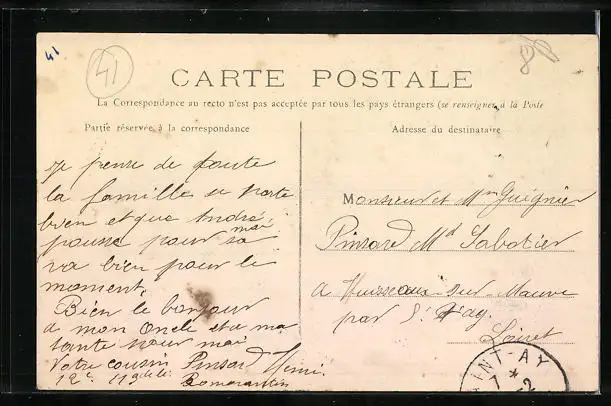 41
41
8
CARTE POSTALE
La Correspondance au recto n'est pas acceptée par tous les pays étrangers (se renseigner à la Poste
Partie réservée à la correspondance
Adresse du destinataire
je pense de toute
la famille se porte
bien et que André
pousse pour moi sa
va bien pour le
moment,
Bien le bonjour
a mon Oncle et a ma
tante pour moi
Votre cousin Pinsard Henri
12e 113e de li
Romorantin
Monsieur et Mme Guignier
Pinsard Md Sabotier
a Huisseau-sur-Mauve
par St Ay
Loiret
SAINT-AY
7 * -2